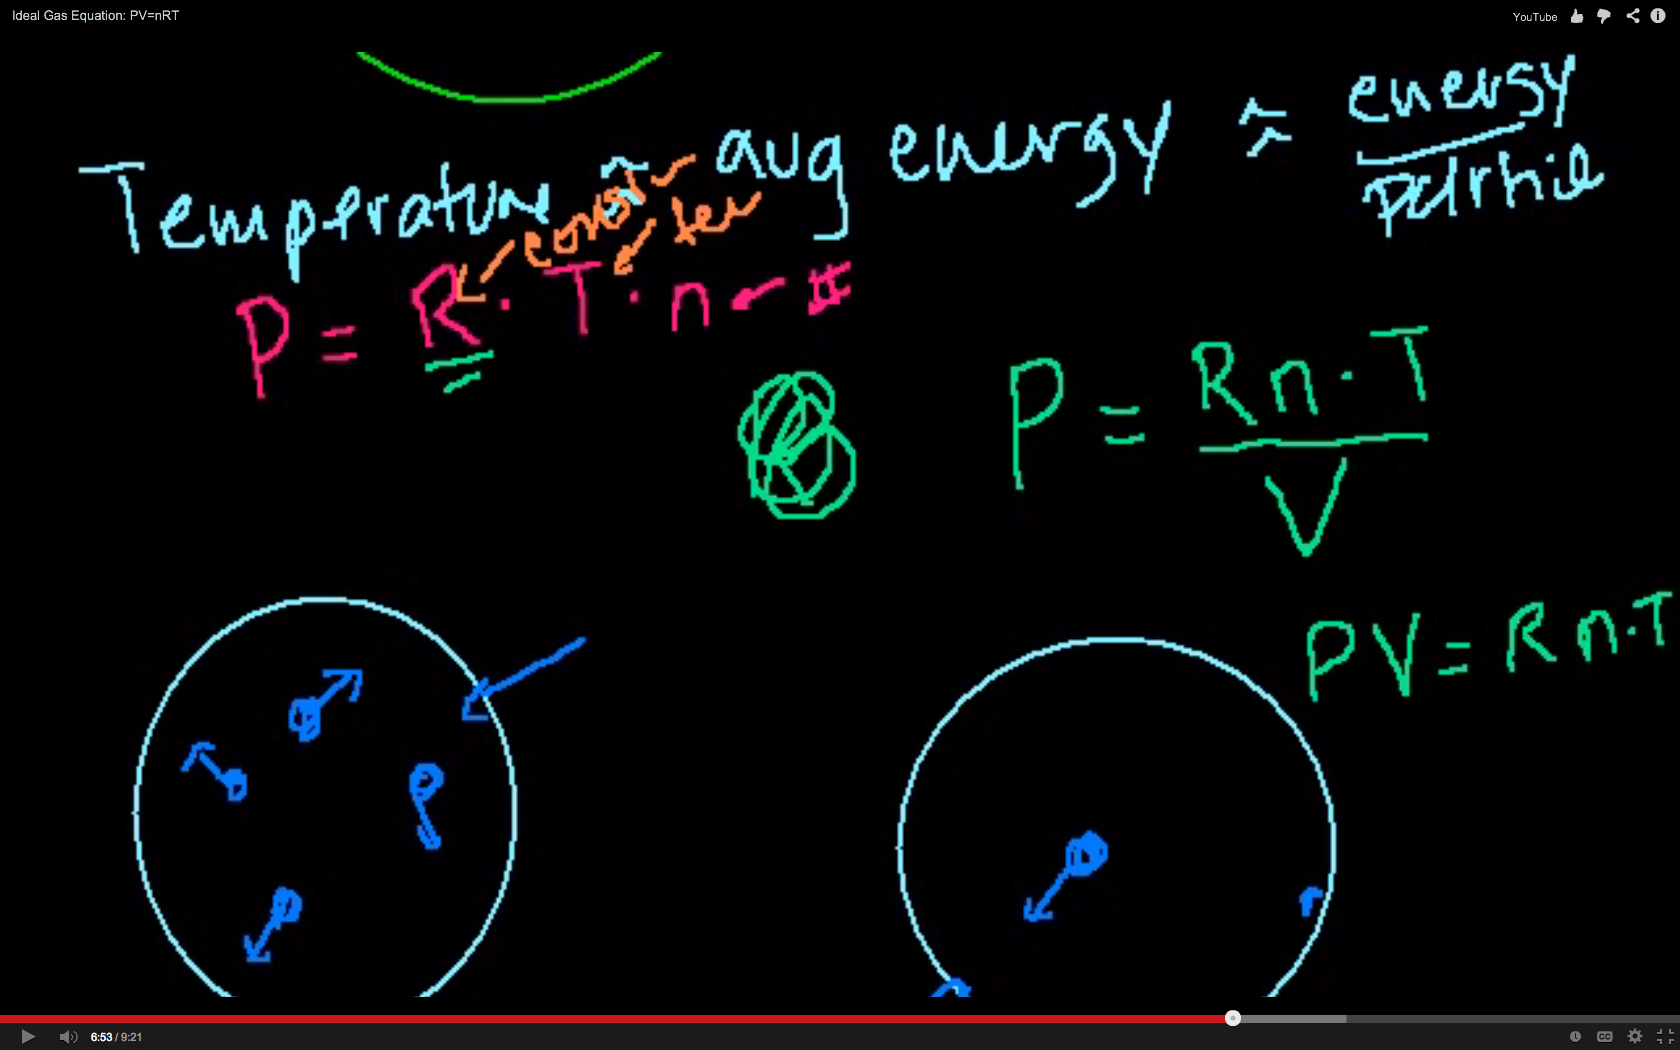 Ideal Gas Equation: PV=nRT
YouTube
Temperature ≈ avg energy ≈ energy
particle
const
tem
P = R · T · n ← #
P = Rn·T
V
PV = Rn·T
6:53 / 9:21
CC